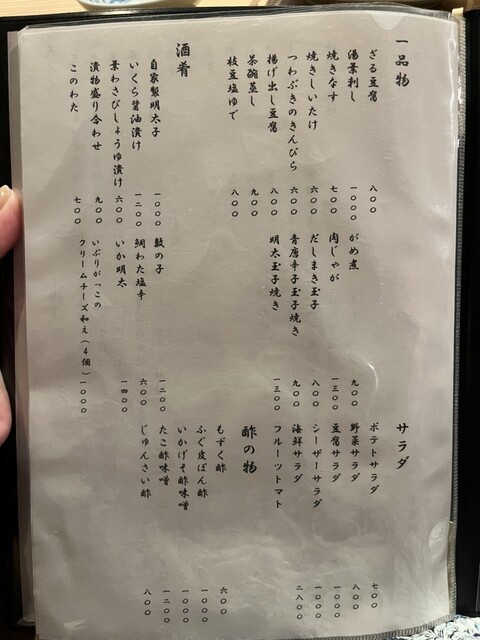 一品物
ざる豆腐 八〇〇
湯葉刺し 一〇〇〇
焼きなす 七〇〇
焼きしいたけ 六〇〇
つわぶきのきんぴら 六〇〇
揚げ出し豆腐 八〇〇
茶碗蒸し 九〇〇
枝豆塩ゆで 八〇〇
がめ煮 九〇〇
肉じゃが 一三〇〇
だしまき玉子 八〇〇
青唐辛子玉子焼き 九〇〇
明太玉子焼き 一三〇〇
酒肴
自家製明太子 一〇〇〇
いくら醤油漬け 一二〇〇
葉わさびしょうゆ漬け 六〇〇
漬物盛り合わせ 九〇〇
このわた 七〇〇
数の子 一二〇〇
鯛わた塩辛 六〇〇
いか明太 一四〇〇
いぶりがっこの
クリームチーズ和え(4個) 一〇〇〇
サラダ
ポテトサラダ 七〇〇
野菜サラダ 八〇〇
豆腐サラダ 一〇〇〇
シーザーサラダ 一〇〇〇
海鮮サラダ 二八〇〇
フルーツトマト
酢の物
もずく酢 六〇〇
ふぐ皮ぽん酢 一〇〇〇
いかげそ酢味噌 一〇〇〇
たこ酢味噌 一二〇〇
じゅんさい酢 八〇〇